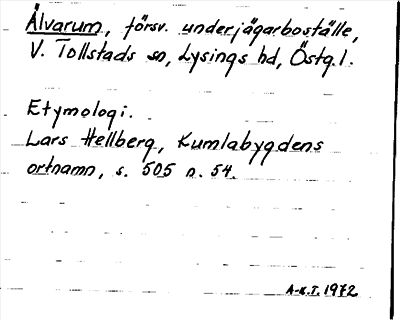 Älvarum, försv. underjägarboställe,
V. Tollstads sn, Lysings hd, Östg.l.
Etymologi.
Lars Hellberg, Kumlabygdens
ortnamn, s. 505 n. 54.
A-K.T. 1972